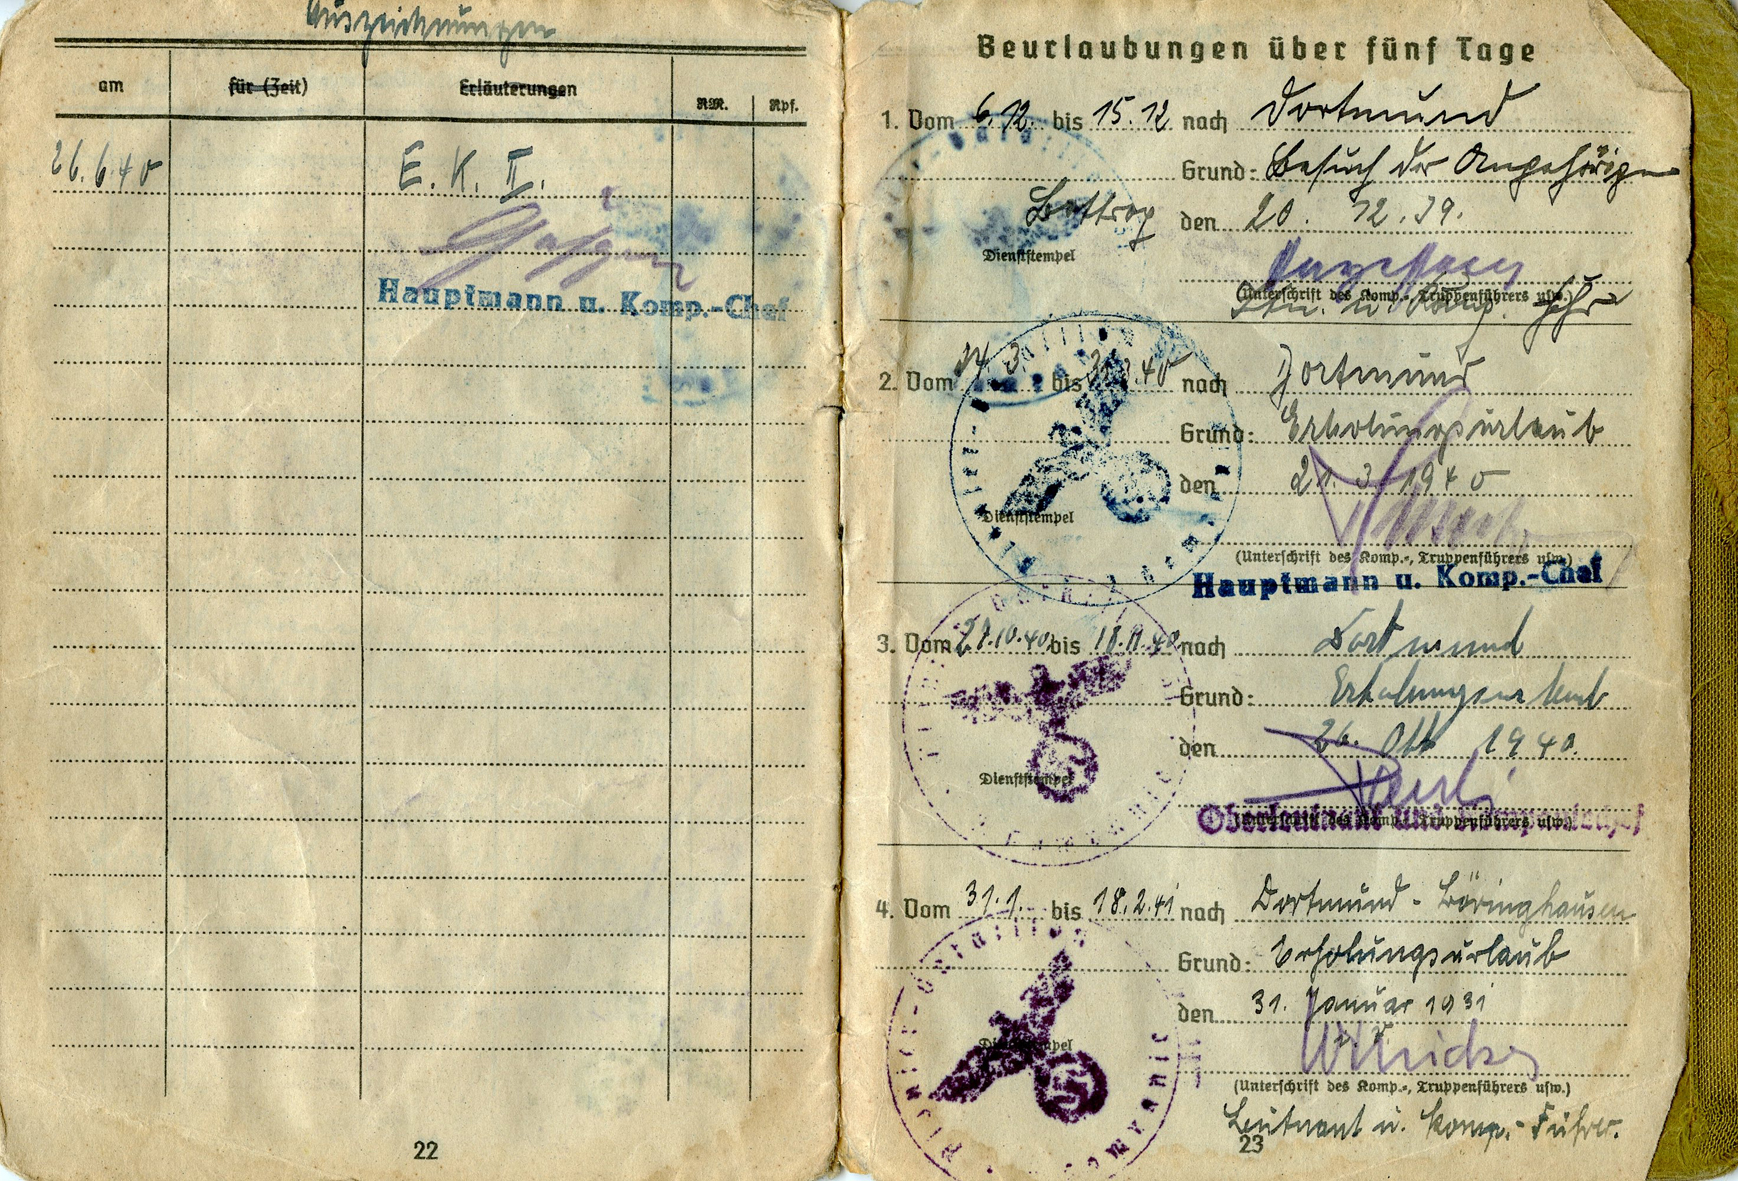 Auszeichnungen
am für (Zeit) Erläuterungen RM. Rpf.
26.6.40 E. K. II.
Hauptmann u. Komp.-Chef
22
Beurlaubungen über fünf Tage
1. Vom 6.12. bis 15.12 nach Dortmund
Grund: Besuch der Angehörigen
Bottrop den 20. 12. 39.
Dienststempel
(Unterschrift des Komp.-, Truppenführers usw.)
2. Vom 14. 3. bis 31.3.40 nach Dortmund
Grund: Erholungsurlaub
den 21. 3. 1940
Dienststempel
(Unterschrift des Komp.-, Truppenführers usw.)
Hauptmann u. Komp.-Chef
3. Vom 27.10.40 bis 18.11.40 nach Dortmund
Grund: Erholungsurlaub
den 26. Okt 1940.
Dienststempel
(Unterschrift des Komp.-, Truppenführers usw.)
Oberleutnant und Kompaniechef
4. Vom 31.1. bis 18.2.41 nach Dortmund - Böringhausen
Grund: Erholungsurlaub
den 31. Januar 1931
Dienststempel
(Unterschrift des Komp.-, Truppenführers usw.)
Leutnant u. Komp.-Führer.
23